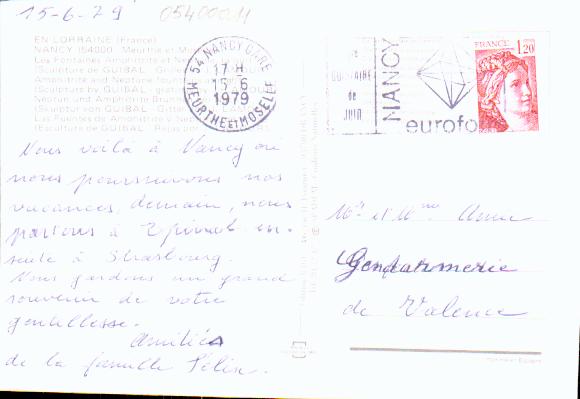 15-6.79 05400011
EN LORRAINE (France)
NANCY (54000 Meurthe-et-Mos
Les Fontaines Amphitrite et Nept
(Sculpture de GUIBAL Grilles
Amphitrite and Neptune founta
(Sculpture by GUIBAL
Neptun und Amphitrite Brunn
(Sculptur von GUIBAL
Las Fuentes de Amphitrite y N
(Escultura de GUIBAL Rejas por
54 NANCY GARE
17 H
15-6
1979
MEURTHE ET MOSELLE
de
JUIN
NANCY
eurofo
FRANCE 1,20
Nous voilà à Nancy où
nous poursuivons nos
vacances, demain, nous
partons à Epinal en-
suite à Strasbourg.
Nous gardons un grand
souvenir de votre
gentillesse.
Amitiés
de la famille Félix.
Mr et Mme
Gendarmerie
de Valence